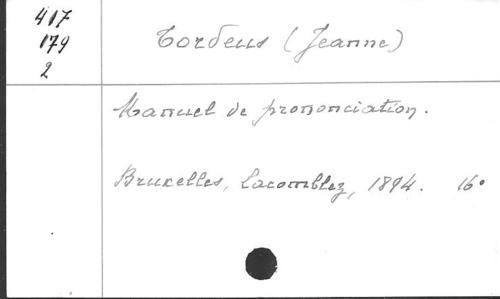 417
179
2
Tordeus (Jeanne)
Manuel de prononciation.
Bruxelles, Lacomblez, 1894. 16°